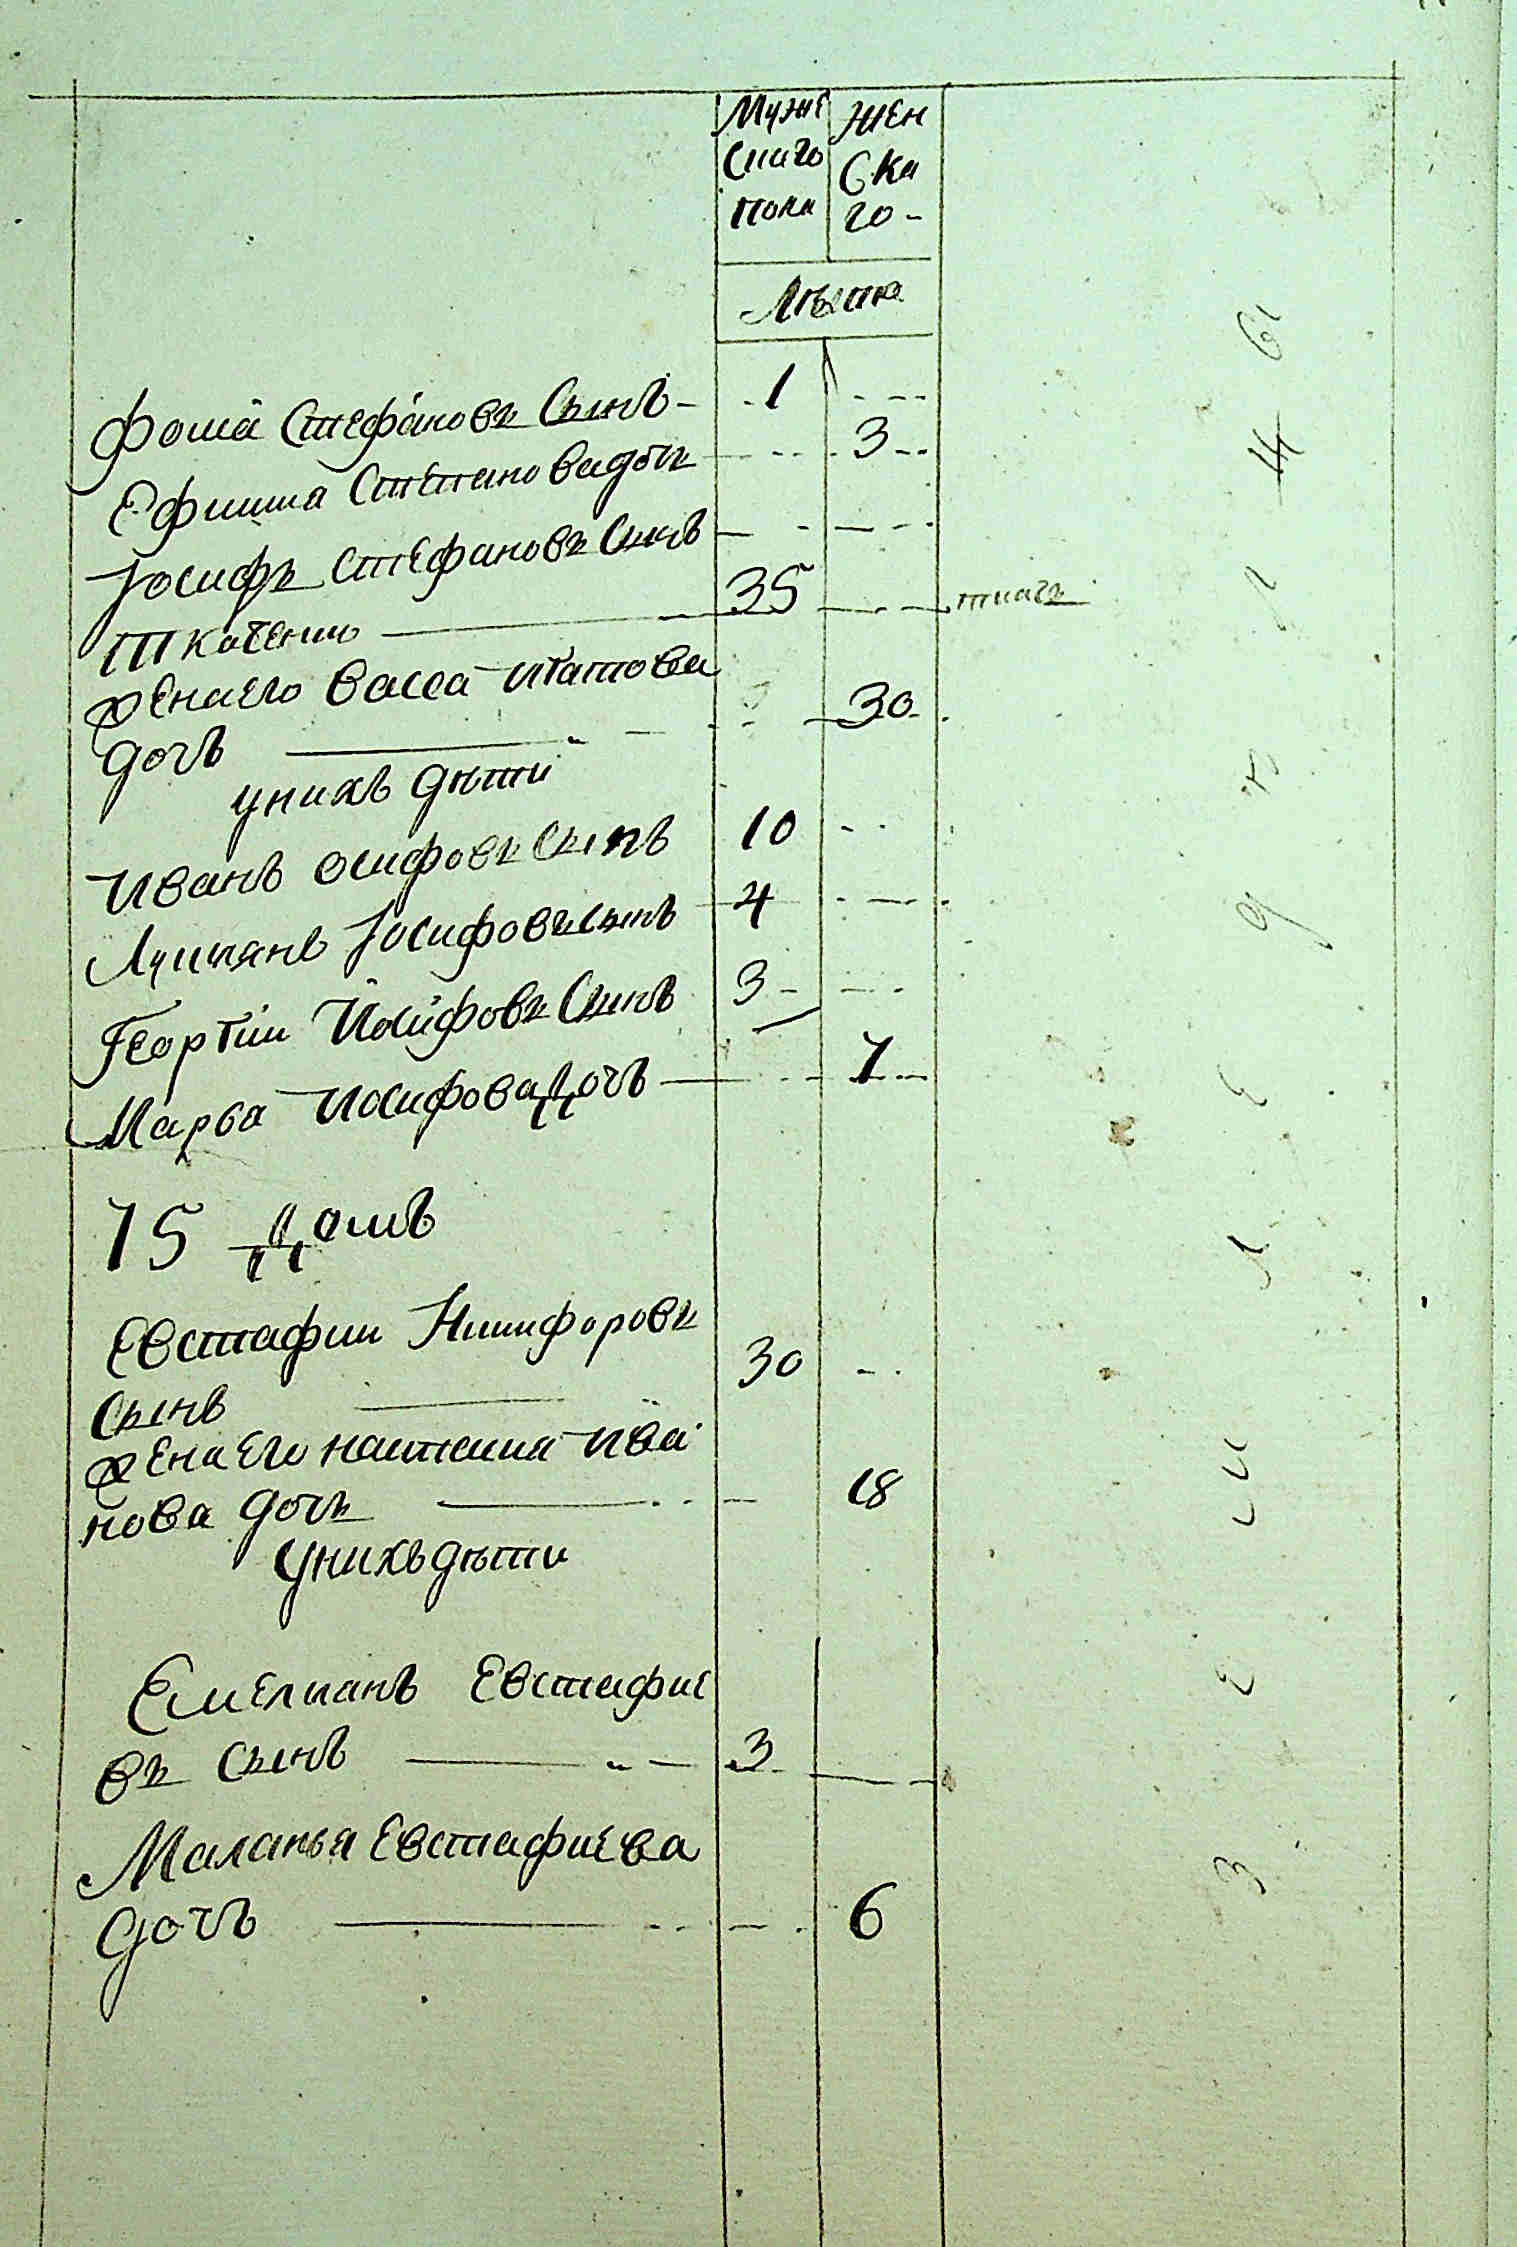 Муже Жен
скаго ска
пола го -
Лѣта
Фома Стефановъ Сынъ - 1
Ефимиа Степанова дочь 3
Іосифъ Стефановъ Сынъ
Ткаченко 35 ткачъ
жена его Васса Игатова
дочь 30
у нихъ дѣти
Иванъ Осифовъ Сынъ 10
Лукиянъ Іосифовъ сынъ 4
Георгіи Иосифовъ Сынъ 3
Марѳа Иосифова Дочь 7
15 Домъ
Евстафии Никифоровъ
Сынъ 30
жена его Настасия Ива
нова дочь 18
У нихъ дѣти
Емелианъ Евстафие
въ Сынъ 3
Маланья Евстафиева
дочь 6